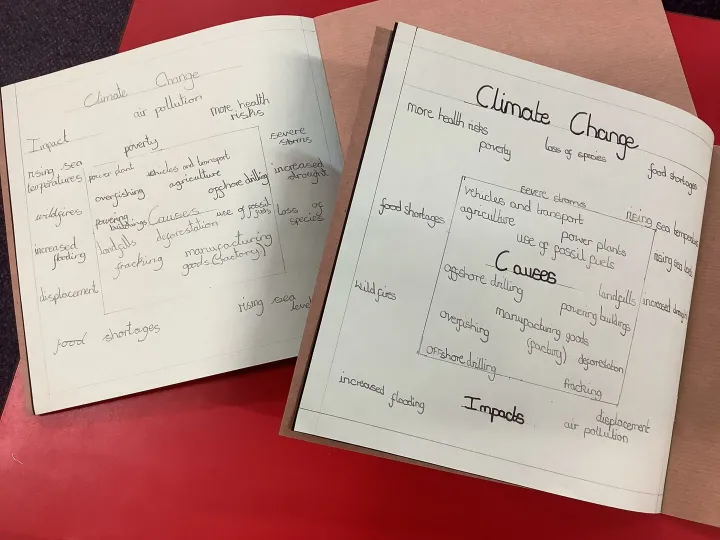 Climate Change
air pollution
more health
risks
Impact
poverty
severe
storms
rising sea
temperatures
power plant
vehicles and transport
agriculture
increased
drought
overfishing
offshore drilling
wildfires
powering
buildings
Causes
use of fossil
fuels
loss of
species
increased
flooding
landfills
deforestation
fracking
manufacturing
goods (factory)
displacement
rising sea
food shortages
Climate Change
more health risks
poverty
loss of species
food shortages
severe storms
food shortages
vehicles and transport
rising sea
agriculture
power plants
use of fossil fuels
rising sea
Causes
offshore drilling
landfills
increased
wildfires
powering buildings
overfishing
manufacturing goods
(factory)
deforestation
offshore drilling
fracking
increased flooding
Impacts
displacement
air pollution